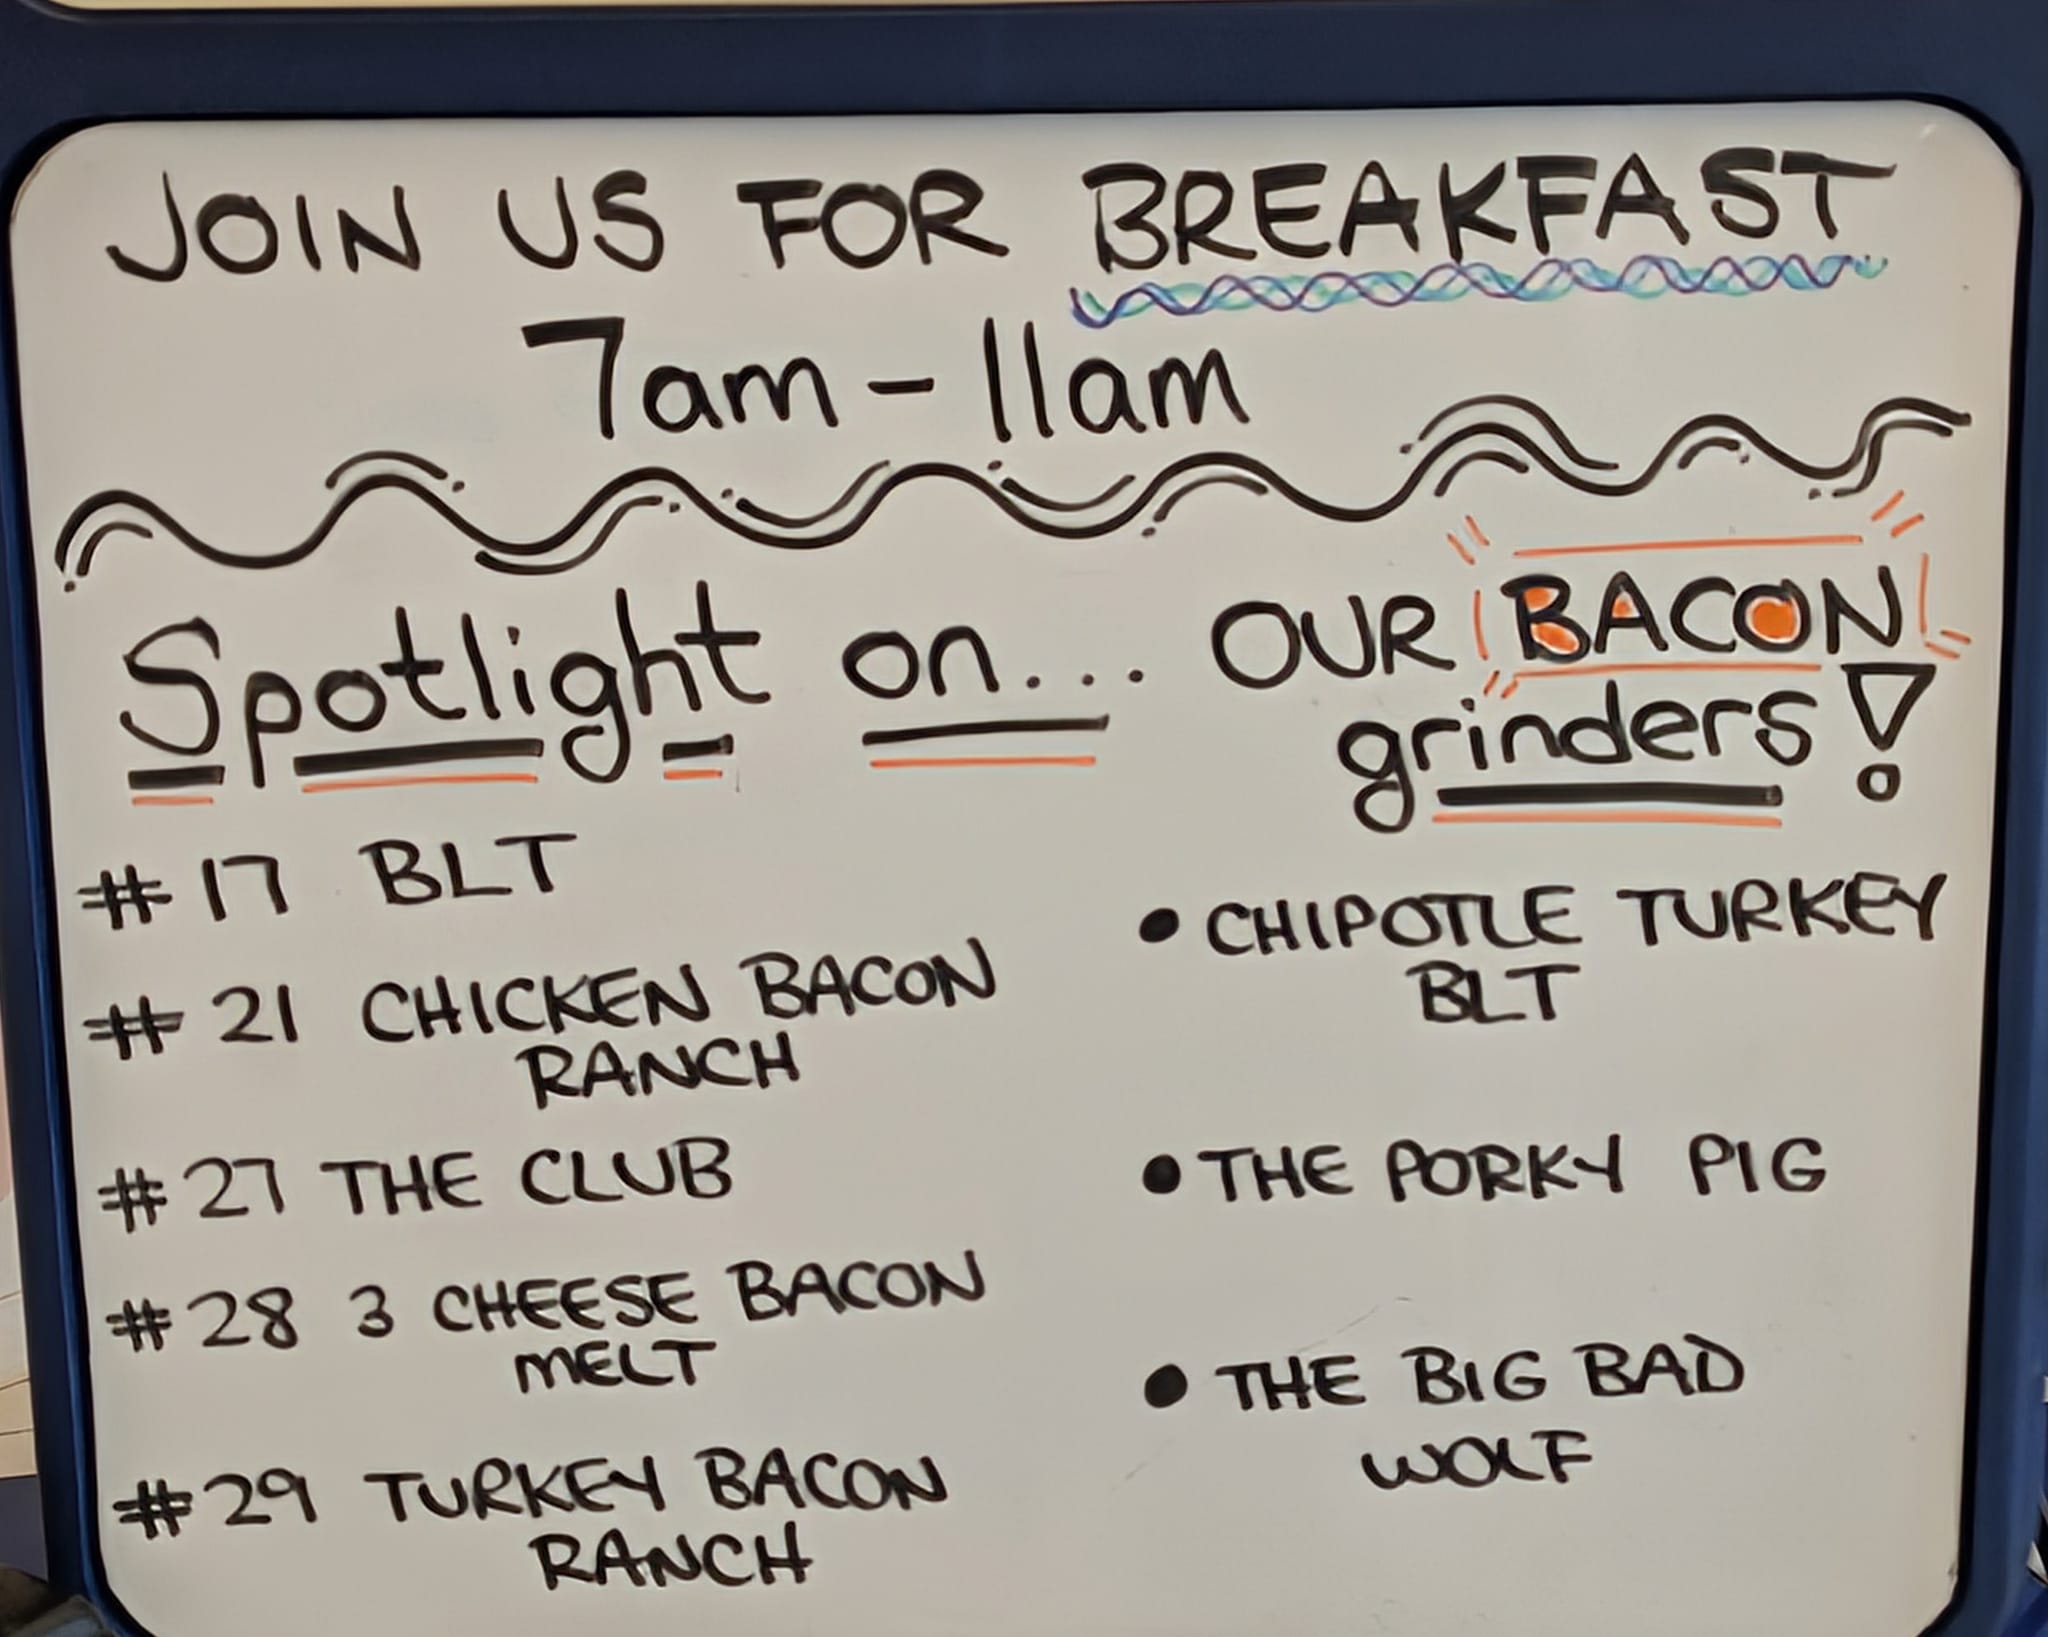 JOIN US FOR BREAKFAST
7am - 11am
Spotlight on... OUR BACON
grinders!
#17 BLT
#21 CHICKEN BACON
RANCH
#27 THE CLUB
#28 3 CHEESE BACON
MELT
#29 TURKEY BACON
RANCH
• CHIPOTLE TURKEY
BLT
• THE PORKY PIG
• THE BIG BAD
WOLF